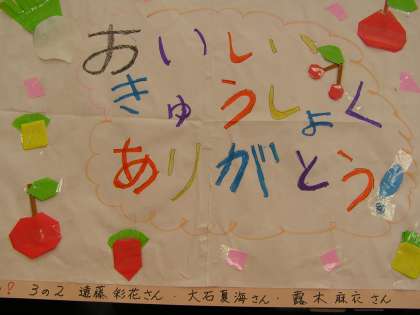 おいしい
きゅうしょく
ありがとう!
! 3の2 遠藤 彩花さん・大石夏海さん・露木麻衣さん